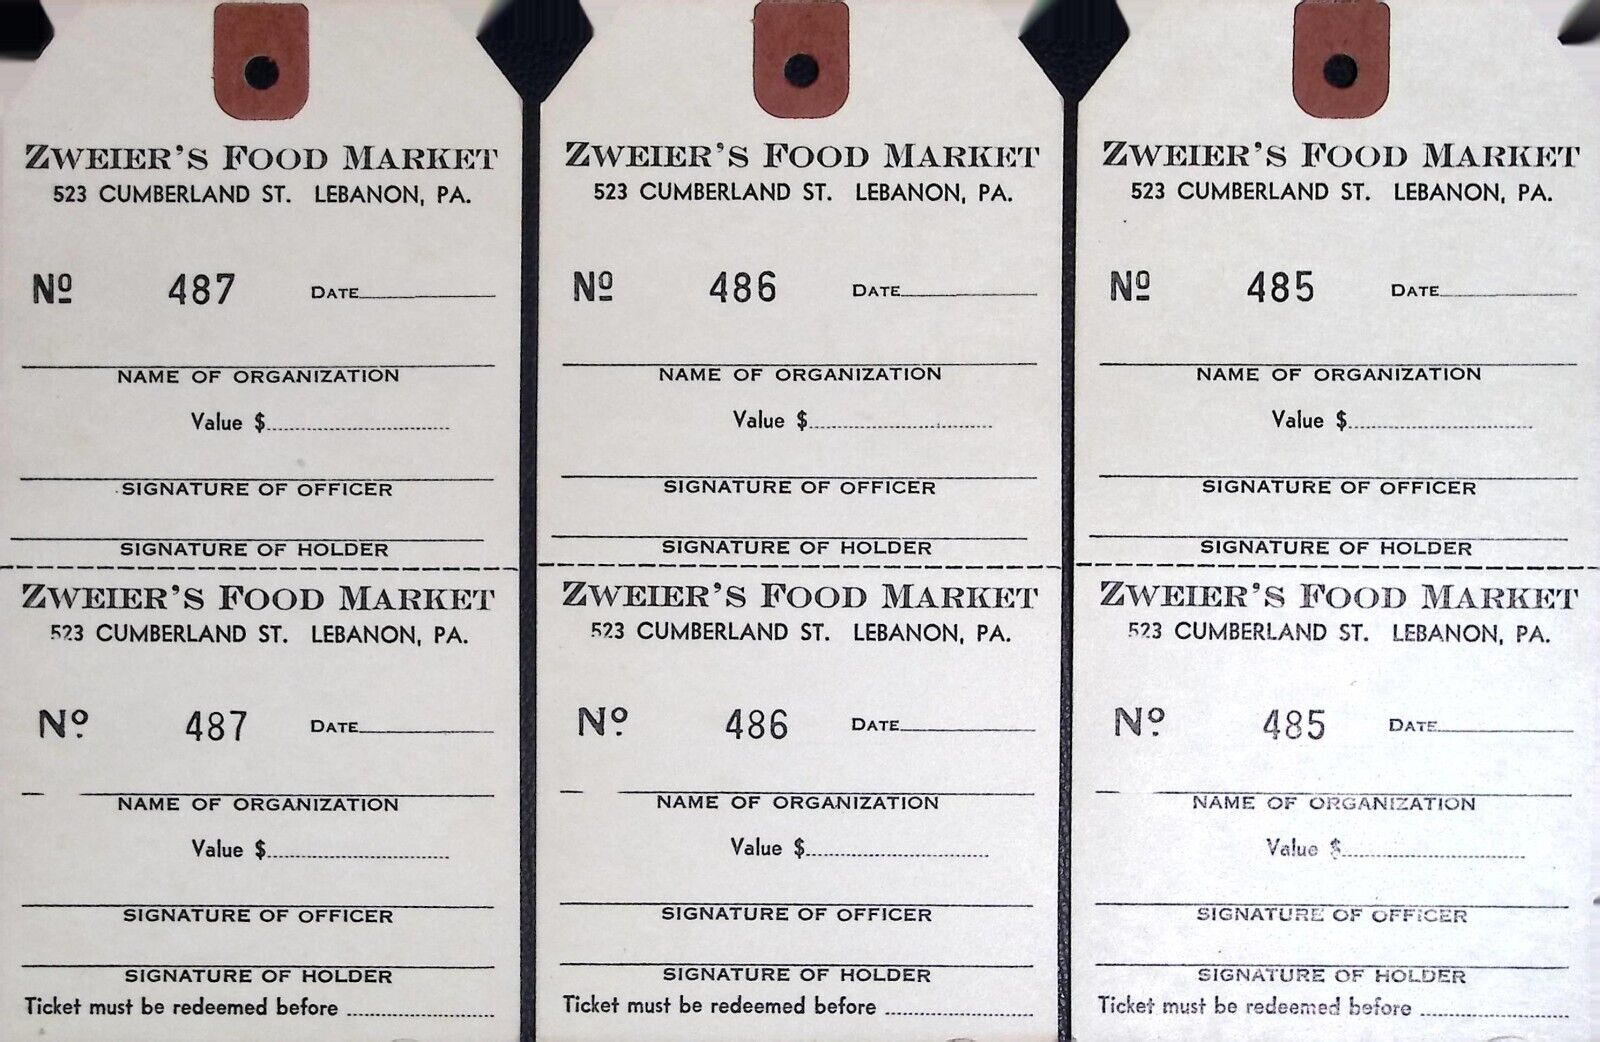 ZWEIER'S FOOD MARKET
523 CUMBERLAND ST. LEBANON, PA.
Nº 487 DATE
NAME OF ORGANIZATION
Value $
SIGNATURE OF OFFICER
SIGNATURE OF HOLDER
ZWEIER'S FOOD MARKET
523 CUMBERLAND ST. LEBANON, PA.
Nº 487 DATE
NAME OF ORGANIZATION
Value $
SIGNATURE OF OFFICER
SIGNATURE OF HOLDER
Ticket must be redeemed before
ZWEIER'S FOOD MARKET
523 CUMBERLAND ST. LEBANON, PA.
Nº 486 DATE
NAME OF ORGANIZATION
Value $
SIGNATURE OF OFFICER
SIGNATURE OF HOLDER
ZWEIER'S FOOD MARKET
523 CUMBERLAND ST. LEBANON, PA.
Nº 486 DATE
NAME OF ORGANIZATION
Value $
SIGNATURE OF OFFICER
SIGNATURE OF HOLDER
Ticket must be redeemed before
ZWEIER'S FOOD MARKET
523 CUMBERLAND ST. LEBANON, PA.
Nº 485 DATE
NAME OF ORGANIZATION
Value $
SIGNATURE OF OFFICER
SIGNATURE OF HOLDER
ZWEIER'S FOOD MARKET
523 CUMBERLAND ST. LEBANON, PA.
Nº 485 DATE
NAME OF ORGANIZATION
Value $
SIGNATURE OF OFFICER
SIGNATURE OF HOLDER
Ticket must be redeemed before